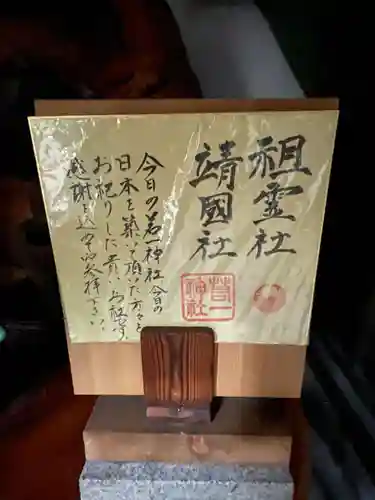 祖霊社
靖國社
今日の若一神社今日の
日本を築いて頂いた方々を
お祀りした貴いお社です
感謝を込め中に参拝下さい。
若一神社